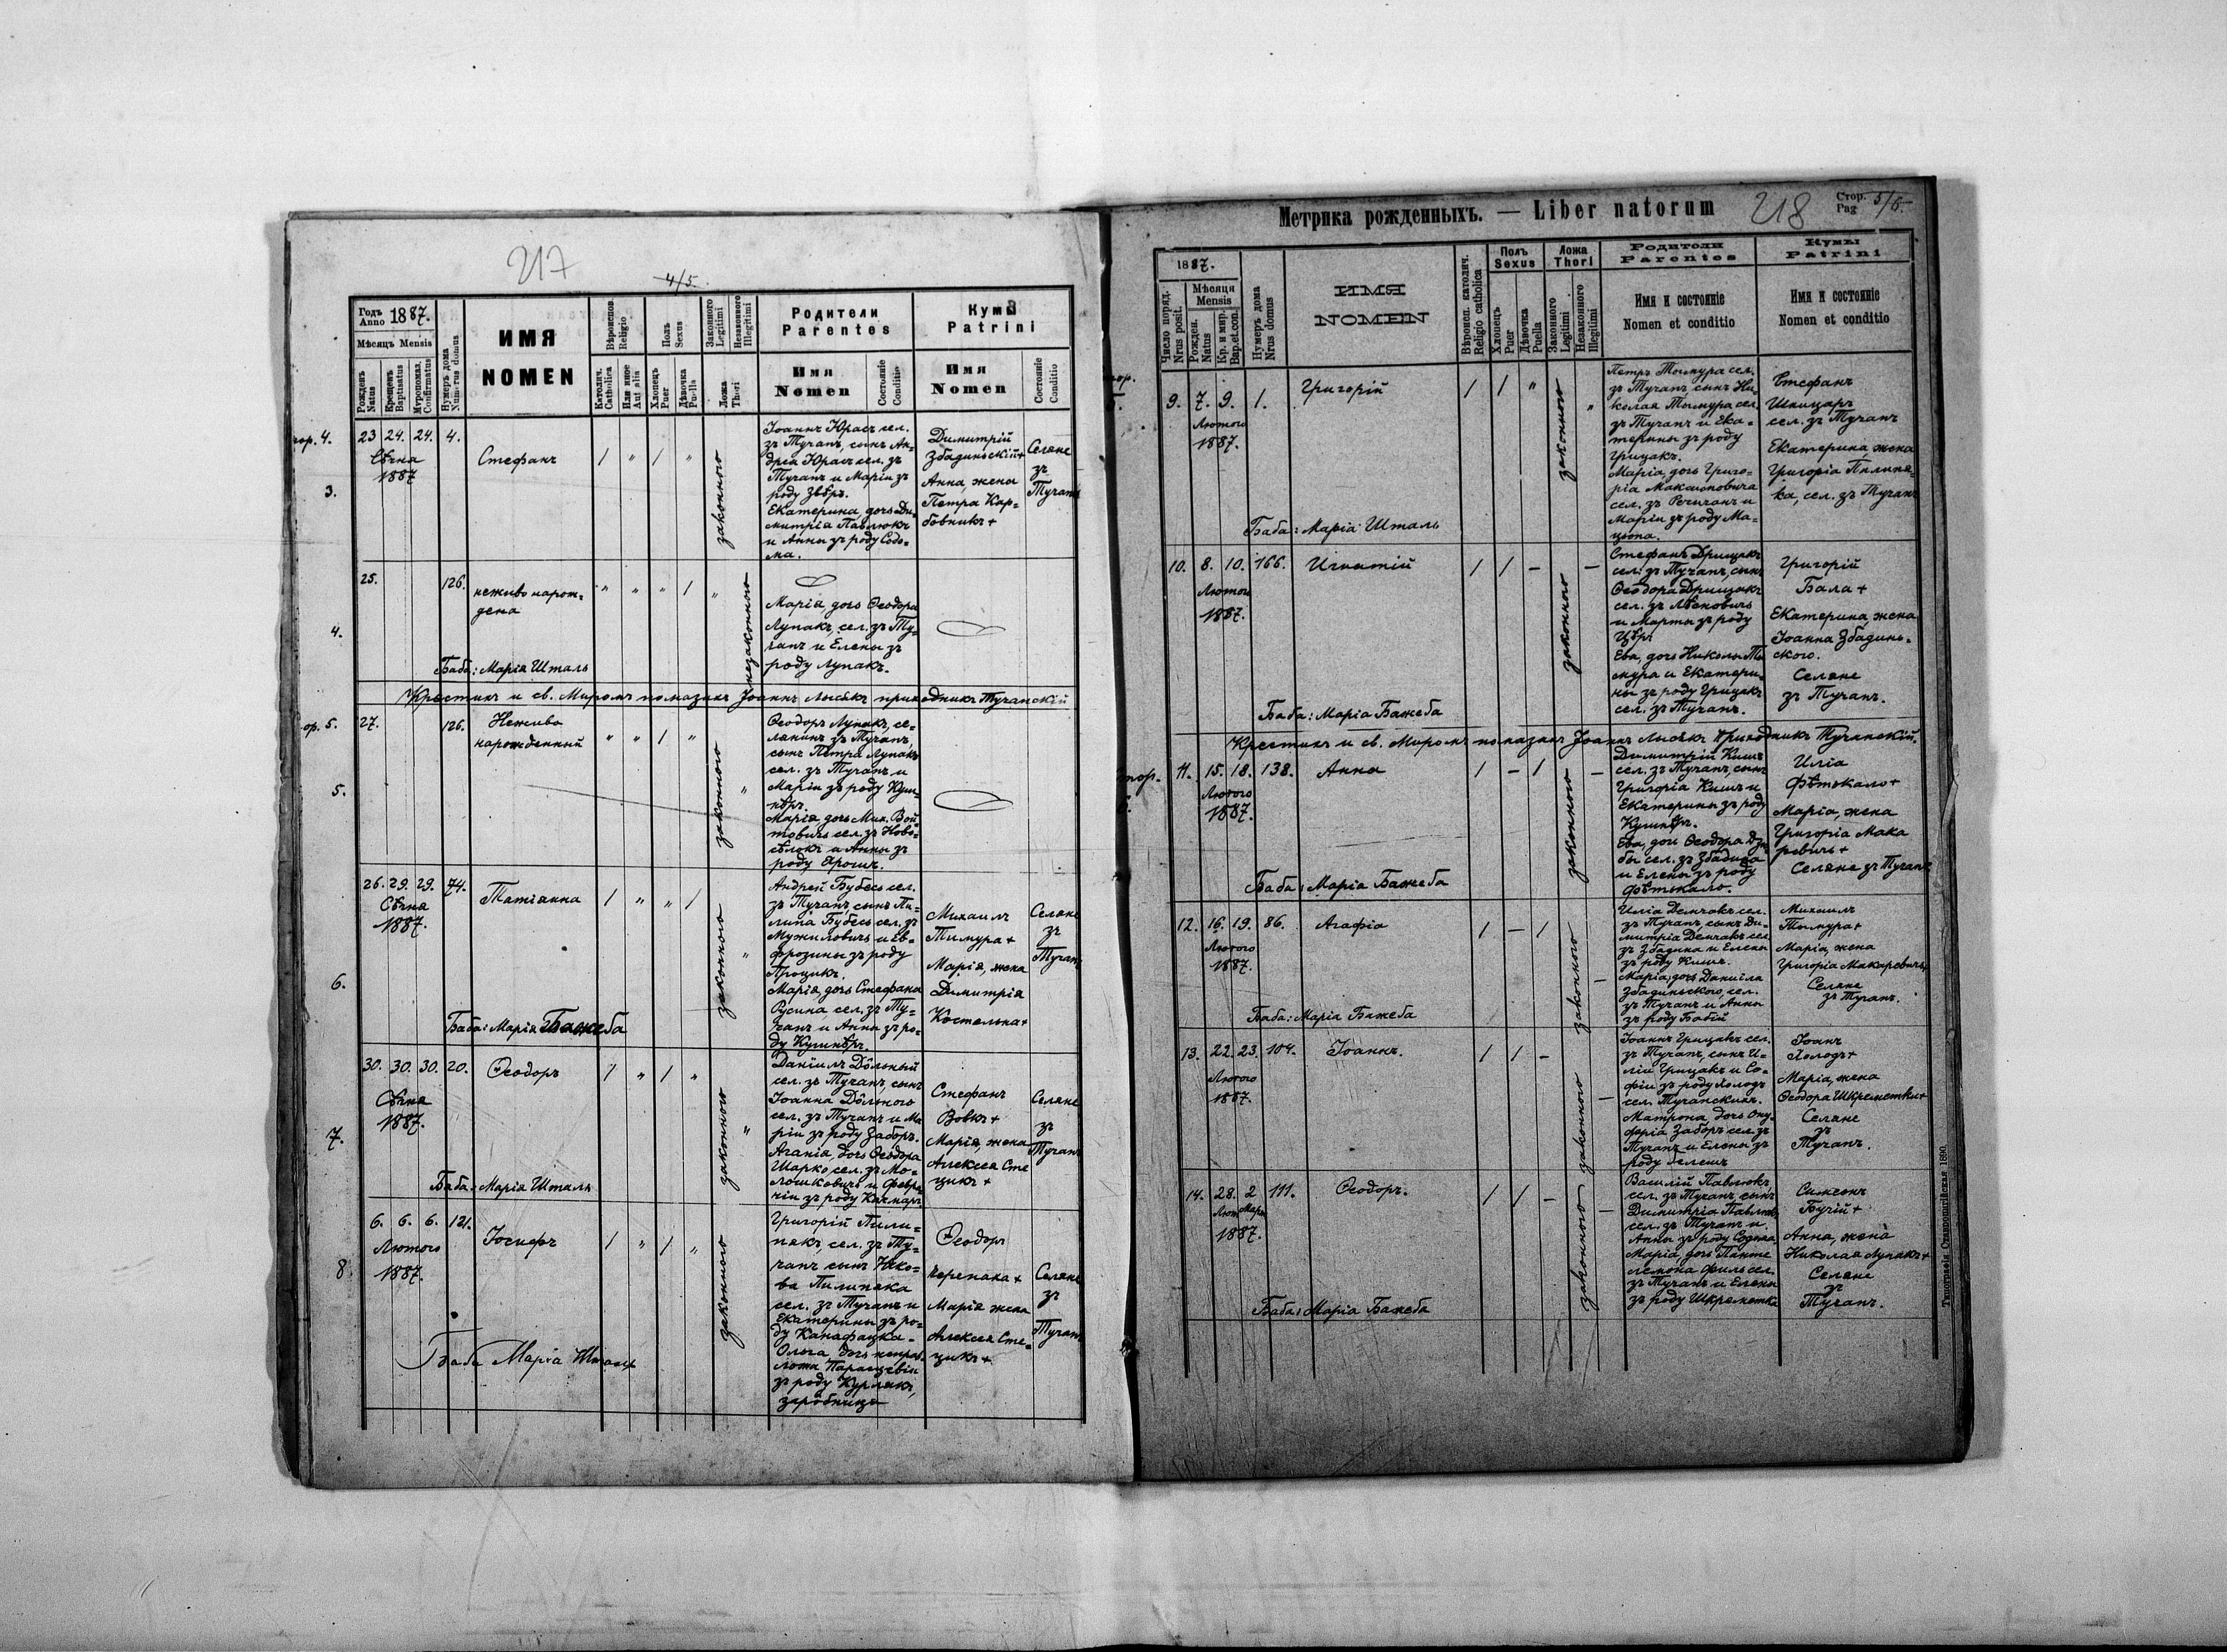 217
4/5.
Годъ
Anno 1887.
Мѣсяцъ Mensis
Рожденъ Natus
Крещенъ Baptisatus
Муропомаз. Confirmatus
Нумеръ дома Numerus domus
ИМЯ
NOMEN
Вѣроиспов. Religio
Католич. Catholica
Или иное Aut alia
Полъ Sexus
Хлопецъ Puer
Дѣвочка Puella
Законного Legitimi
Незаконного Illegitimi
Ложа Thori
Родители
Parentes
Имя
Nomen
Состояніе Conditio
Кумы
Patrini
Имя
Nomen
Состояніе Conditio
3.
23 24. 24. 4.
Сѣчня
1887
Стефанъ
законного
Іоаннъ Юрасъ сел.
зъ Тучапъ, сынъ Ан-
дрея Юрасъ сел. зъ
Тучапъ и Маріи зъ
роду Звѣръ.
Екатерина, дочь Ди-
митрія Павлюкъ
и Анны зъ роду Содо-
ма.
Димитрій
Збадиньскій +
Анна, жена
Петра Кар-
бовникъ +
Селяне
зъ
Тучапъ
4.
25.
126.
неживо нарож-
дена
незаконного
Марія, дочь Ѳеодора
Лупакъ, сел. зъ Ту-
чапъ и Елены зъ
роду Лупакъ.
Баба: Марія Шталь
Крестилъ и св. Миромъ помазалъ Іоаннъ Лысякъ приходникъ Тучапскій
5.
27.
126.
Неживо
нарожденный
законного
Ѳеодоръ Лупакъ, се-
лянинъ зъ Тучапъ,
сынъ Петра Лупакъ
сел. зъ Тучапъ и
Маріи зъ роду Куш-
нѣръ.
Марія, дочь Мих. Вой-
товичъ сел. зъ Ново-
сѣлокъ и Анны зъ
роду
6.
26. 29. 29. 74.
Сѣчня
1887.
Татіанна
законного
Андрей Бубесъ сел.
зъ Тучапъ сынъ Пи-
липа Бубесъ сел. зъ
Мужиловичъ и Ев-
фрозины зъ роду
Процикъ.
Марія, дочь Стефана
Русина сел. зъ Ту-
чапъ и Анны зъ ро-
ду Кушнѣръ.
Михаилъ
Тимура +
Марія, жена
Димитрія
Костельна +
Селяне
зъ
Тучапъ
Баба: Марія Бажеба
7.
30. 30. 30. 20.
Сѣчня
1887.
Ѳеодоръ
законного
Даніилъ Дôльный
сел. зъ Тучапъ, сынъ
Іоанна Дôльного
сел. зъ Тучапъ и Ма
ріи зъ роду Заборъ.
Агапія, дочь Ѳеодора
Шарко, сел. зъ Мо-
лошковичъ и Февро-
ніи зъ роду Качмаръ.
Стефанъ
Вовкъ +
Марія, жена
Алексея Сте
цикъ +
Селяне
зъ
Тучапъ
Баба: Марія Шталь
8.
6. 6. 6. 121.
Лютого
1887.
Іосифъ
законного
Григорій Пили-
пякъ, сел. зъ Ту-
чапъ сынъ Яко-
ва Пилипяка
сел. зъ Тучапъ и
Екатерины зъ ро-
ду Канафацка.
Ольга, дочь неправ.
ложа Параскевіи
зъ роду Курлякъ,
зарôбниця
Ѳеодоръ
Перепака +
Марія жена
Алексея Сте-
цикъ +
Селяне
зъ
Тучапъ
Баба Марія Шталь
Метрика рожденныхъ. — Liber natorum
218
Стор.
Pag 5/6.
1887.
Число поряд. Nrus posit.
Мѣсяця
Mensis
Рожден. Natus
Кр. и мир. Bap. et con.
Нумеръ дома Nrus domus
ИМЯ
NOMEN
Вѣроисп. католич. Religio catholica
Полъ
Sexus
Хлопецъ Puer
Дѣвочка Puella
Ложа
Thori
Законного Legitimi
Незаконного Illegitimi
Родители
Parentes
Имя и состояніе
Nomen et conditio
Кумы
Patrini
Имя и состояніе
Nomen et conditio
9. 7. 9. 1.
Лютого
1887.
Григорій
законного
Петръ Тимура сел.
зъ Тучапъ, сынъ Ни-
колая Тымура сел.
зъ Тучапъ и Ека-
терины зъ роду
Грицакъ.
Марія, дочь Григо-
рія Максимовича
сел. зъ Речичанъ и
Маріи зъ роду Ма-
цюпа.
Стефанъ
Шницаръ
сел. зъ Тучапъ
Екатерина, жена
Григорія Пилипя-
ка, сел. зъ Тучапъ
Баба: Марія Шталь
10. 8. 10. 166.
Лютого
1887.
Игнатій
законного
Стефанъ Дрищакъ
сел. зъ Тучапъ, сынъ
Ѳеодора Дрищакъ
сел. зъ Лѣсновичъ
и Марты зъ роду
Цѣръ.
Ева, дочь Николы Ти
мура и Екатери-
ны зъ роду Грицакъ
сел. зъ Тучапъ.
Григорій
Бала +
Екатерина, жена
Іоанна Збадинь-
ского.
Селяне
зъ Тучапъ.
Баба: Марія Бажеба
Крестилъ и св. Миромъ помазалъ Іоаннъ Лысякъ приходникъ Тучапскій.
11. 15. 18. 138.
Лютого
1887.
Анна
законного
Димитрій Кишъ
сел. зъ Тучапъ, сынъ
Григорія Кишъ и
Екатерины зъ роду
Кушнѣръ.
Ева, дочь Ѳеодора Дзю-
бы сел. зъ Збадиня
и Елены зъ роду
Фѣтькало.
Илія
Фѣтькало +
Марія, жена
Григорія Мака
ревичъ +
Селяне зъ Тучапъ
Баба: Марія Бажеба
12. 16. 19. 86.
Лютого
1887.
Агафія
законного
Илія Демчакъ сел.
зъ Тучапъ, сынъ Ди-
митрія Демчакъ сел.
зъ Збадиня и Елены
зъ роду Кишъ.
Марія, дочь Даніила
Збадиньского, сел.
зъ Тучапъ и Анны
зъ роду Бабій
Михаилъ
Тымура +
Марія, жена
Григорія Макаревичъ
Селяне
зъ Тучапъ.
Баба: Марія Бажеба
13. 22. 23. 104.
Лютого
1887.
Іоаннъ.
законного
Іоаннъ Грицакъ сел.
зъ Тучапъ, сынъ И-
ліи Грицакъ и Со-
фіи зъ роду Холодъ
сел. Тучапскихъ.
Матрона, дочь Ону-
фрія Заборъ сел. зъ
Тучапъ и Елены зъ
роду
Іоанъ
Холодъ +
Марія, жена
Ѳеодора Шкреметки +
Селяне
зъ
Тучапъ.
14. 28. 2 111.
Лют. Марта
1887.
Ѳеодоръ.
законного
Василій Павлюкъ,
сел. зъ Тучапъ, сынъ
Димитрія Павлюкъ
сел. зъ Тучапъ и
Анны зъ роду Содома
Марія, дочь Панте
леимона Филь сел.
зъ Тучапъ и Елены
зъ роду Шкреметка
Симеонъ
Бучій +
Анна, жена
Николая Лупакъ +
Селяне
зъ
Тучапъ.
Баба: Марія Бажеба
Типографія Ставропигійская 1890.